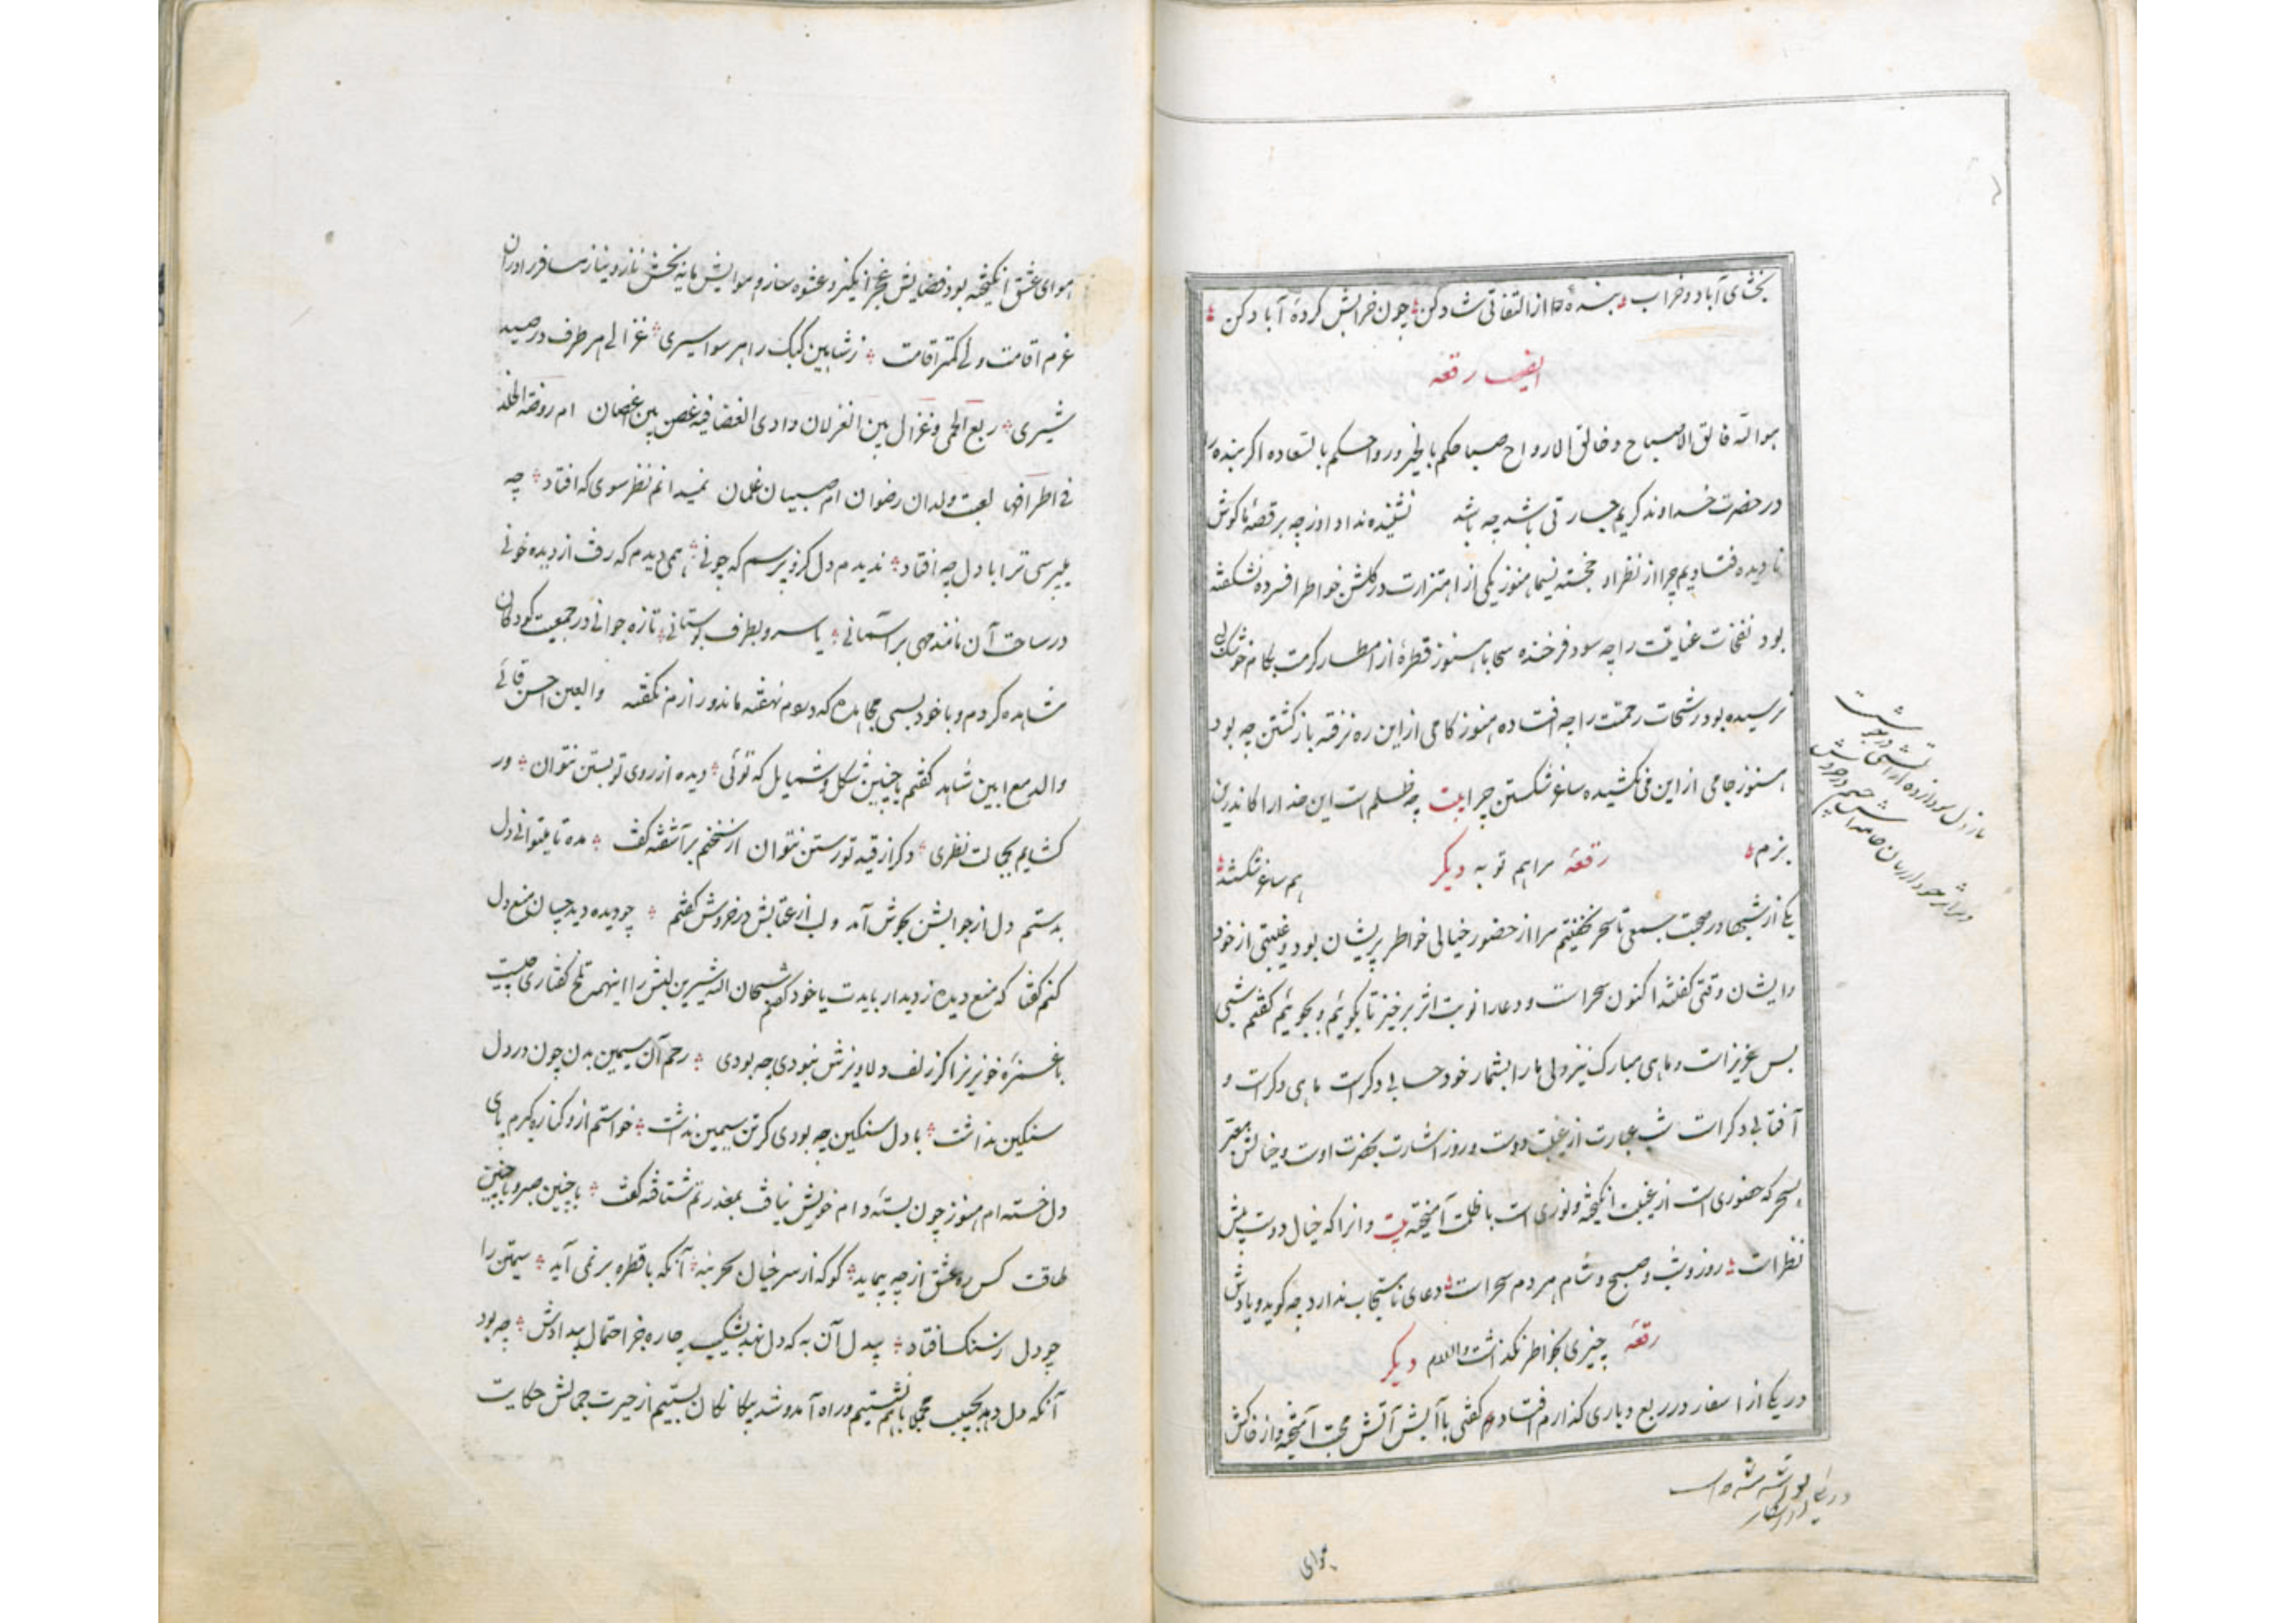 بخشای آباد و خراب بنده را از التفاتی شاد کن چون خرابش کردهٔ آباد کن
ایضا رقعه
هو الله فالق الاصباح و خالق الارواح صباحکم بالخیر و رواحکم بالسعاده اگر بنده را
در حضرت خداوند کریم جسارتی باشد چه باشد نشنیده نداد اوز چه بر قصهٔ ما گوش
نادیده فتادیم چرا از نظر او خجسته نسیما هنوز یکی از اهتزازت در گلشن خواطر افسرده نشکفته
بود نفخات عنایت را چه سود فرخنده سحابا هنوز قطرهٔ از امطار کرمت بکام خوشک لبی
نرسیده بود رشحات رحمت را چه افتاده هنوز کامی از این ره نرفته باز گشتن چه بود
هنوز جامی از این می نکشیده ساغر شکستن چرا بیت چه ظلم است این خدا را کاندرین
بزم هم ساغر شکستند مرا هم توبه رقعهٔ دیگر
یکی از شبها در صحبت جمعی تا سحر نخفتیم مرا از حضور خیالی خواطر پریشان بود و غیبتی از خود
و ایشان وقتی گفتند اکنون سحر است و دعا را نوبت اثر برخیز تا بگوئیم و بجوئیم گفتم شبی
بس عزیز است و ماهی مبارک نیز ولی ما را بشمار خود حسابی دکر است ماهی دکر است و
آفتابی دکر است شب عبارت از غیبت دوست و روز اشارت بحضرت اوست و خیالش معبر
بسحر که حضوری است از غیبت انگیخته و نوری است با ظلمت آمیخته بیت و انرا که خیال دوست پیش
نظر است روز و شب و صبح و شام هر دم سحر است دعای نامستجاب ندارد چه گوید و یادش
چیزی بخواطر نگذاشت والسلام رقعهٔ دیگر
در یکی از اسفار در ربع و یاری گذارم افتاد که گفتی با آبش آتش محبت آمیخته و از خاکش
هوای
هوای عشق انگیخته بود فضایش عجز انگیز و عشوه ساز و هوایش مایه بخش ناز و نیاز مسافر را در آن
عزم اقامت ولی کمتر اقامت ز شاهین کبک را هر سو اسیری غزالی هر طرف در صید
شیری ربع الحمی و غزال بین الغزلان وادی الغضا فیه غصن بین اغصان ام روضة الخلد
فی اطرافها لعبت ولدان رضوان ام صبیان غلمان نمیدانم نظر سوی که افتاد چه
میپرسی ترا با دل چه افتاد ندیدم دل کزو پرسم که چونی همی دیدم که رفت از دیده خونی
در ساحت آن مانند مهی بر آسمانی یا سرو بطرف بوستانی تازه جوانی در جمعیت کودکان
مشاهده کردم و با خود بسی مجاهده که دیدم نهفته ماند و رازم نگفته و العین احسن قائی
والدمع ابین شاهد گفتم با چنین شکل و شمایل که توئی دیده از روی تو بستن نتوان ور
گشایم بجمالت نظری دکر از قید تو رستن نتوان از سخنم برآشفته گفت مده تا میتوانی دل
بدستم دل از جوابش بجوش آمد و لب از عتابش در خروش گفتم چو دیده دید چسان منع دل
کنم گفتا که منع دیده ز دیدار بایدت یا خود گفتم سبحان الله شیرین لبش را اینهمه تلخ گفتاری چیست
با غمزهٔ خونریز اگر زلف دلاویزش نبودی چه بودی رحم آن سیمین بدن چون در دل
سنگین نداشت با دل سنگین چه بودی گر تن سیمین نداشت خواستم از و کناره گیرم پای
دل خسته ام هنوز چون بستهٔ دام خویش یافت بمعذرتم شتافته گفت با چنین صبر و با چنین
طاقت کس ره عشق از چه پیماید گو که از سر خیال بحر بنه آنکه با قطره بر نمی آید سیمتن را
چو دل ز سنگ افتاد بیدل آن به که دل نهد بشکیب چاره جز احتمال بیدادش چه بود
آنکه دل دهد بحبیب بجا باهم نشستیم و راه آمد و شد بیگانگان بستیم از حیرت جمالش حکایت